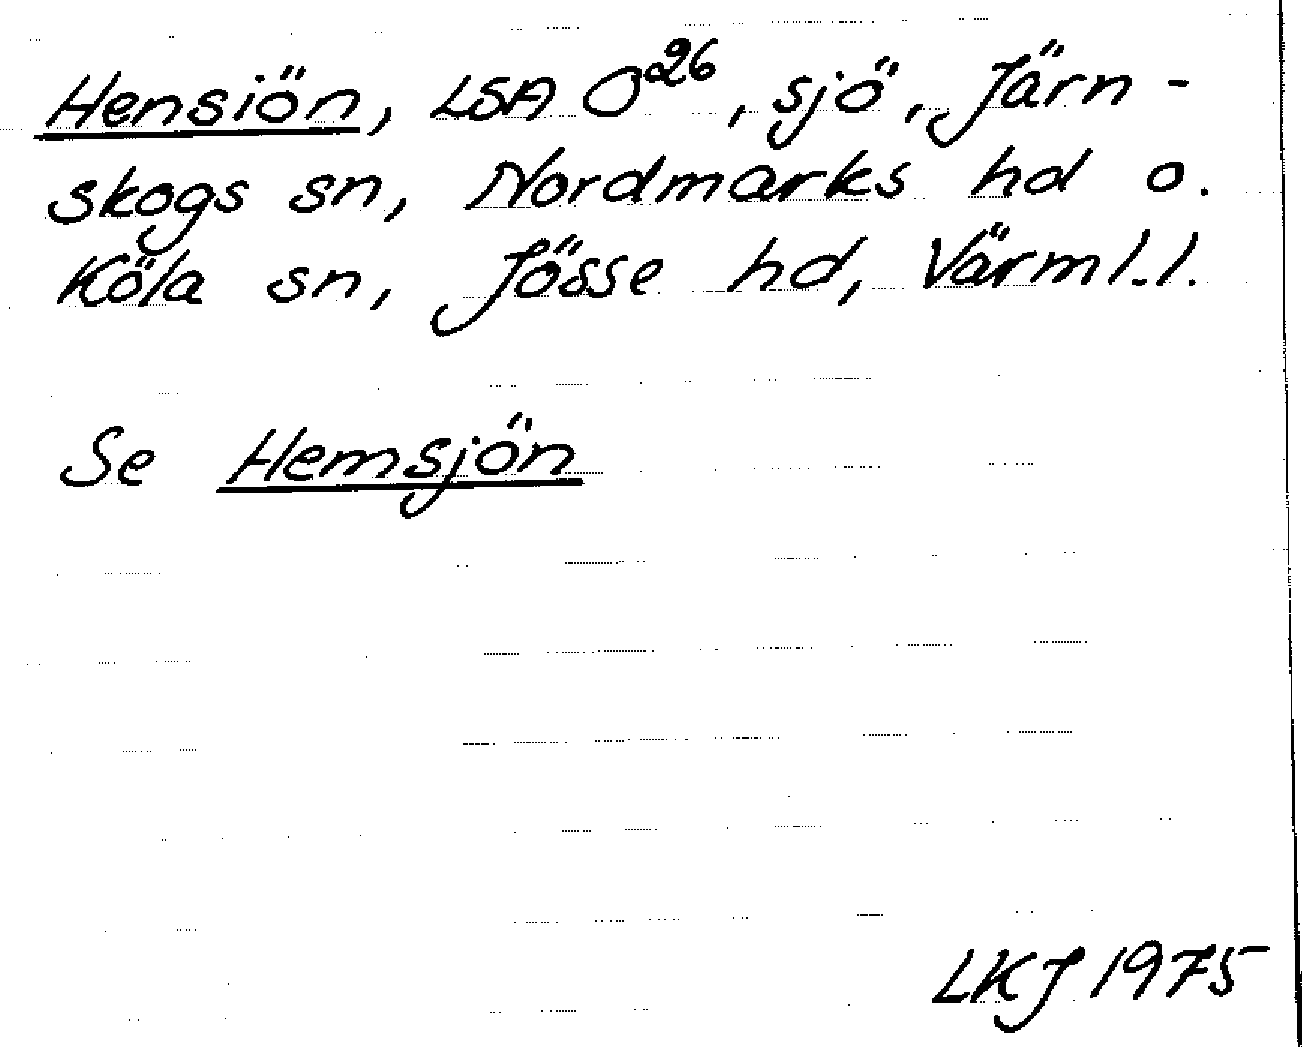 Hensiön, LSA O²⁶, sjö, Järn-
skogs sn, Nordmarks hd o.
Köla sn, Jösse hd, Värml.l.
Se Hemsjön
LKJ 1975